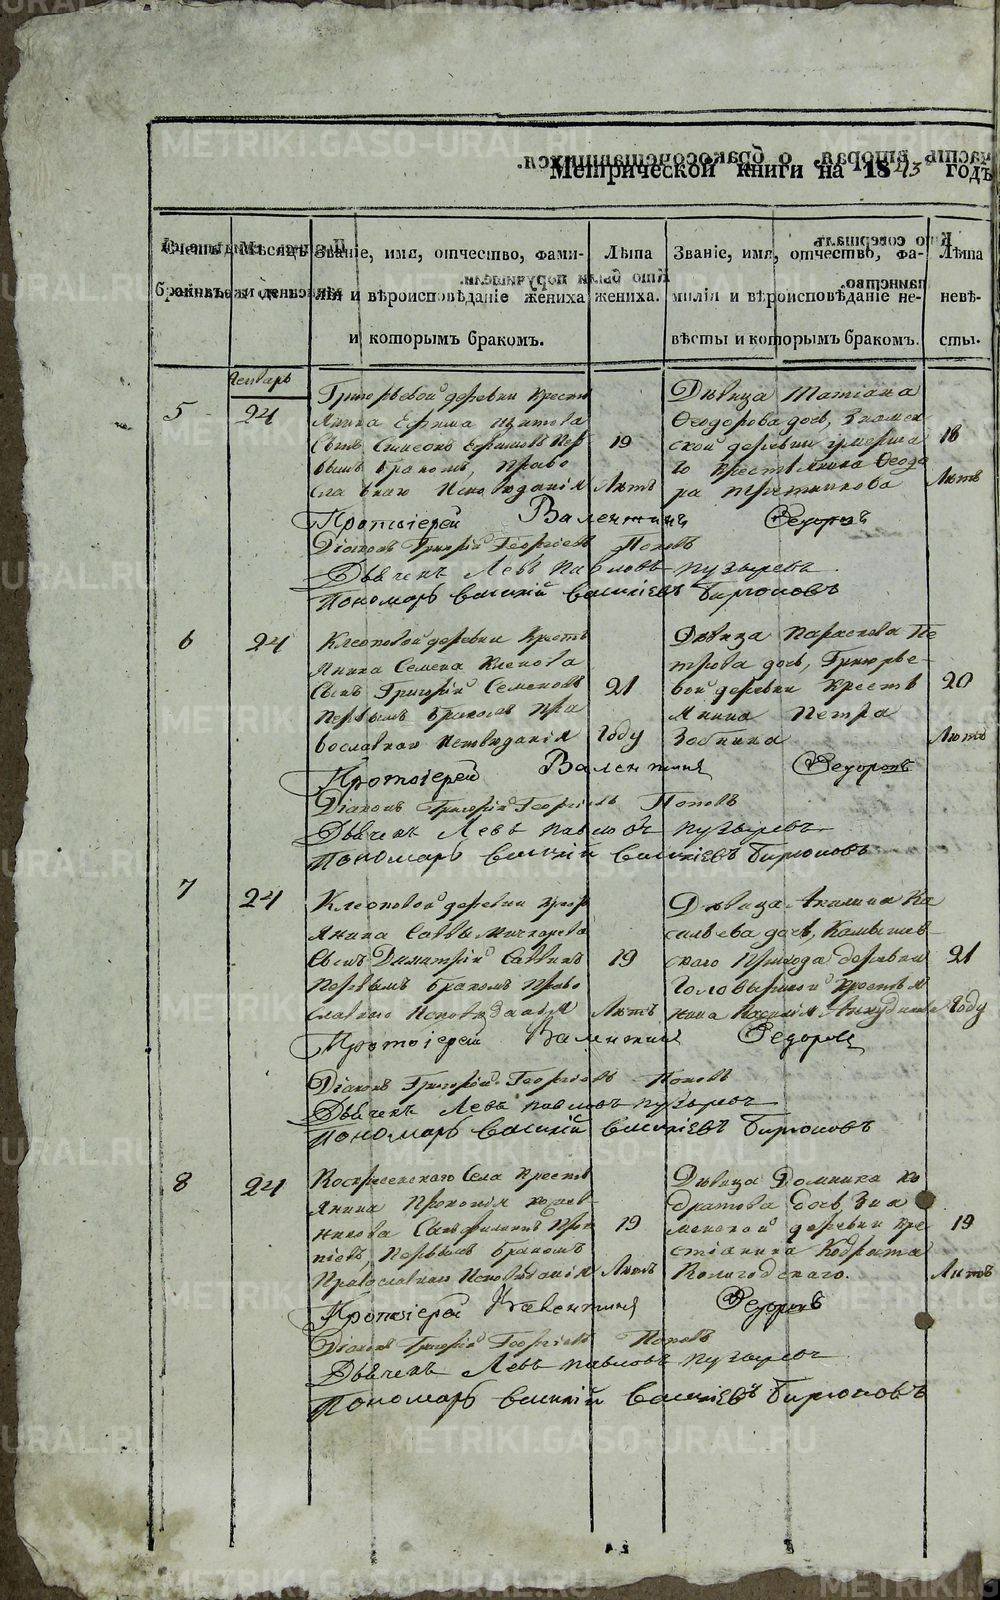 Метрической книги на 1843 годъ
Счетъ браковъ.
Мѣсяцъ и день.
Званіе, имя, отчество, фамилія и вѣроисповѣданіе жениха и которымъ бракомъ.
Лѣта жениха.
Званіе, имя, отчество, фамилія и вѣроисповѣданіе невѣсты и которымъ бракомъ.
Лѣта невѣсты.
Генварь
5
24
Григорьевой деревни Кресть
янина Ефима
Сынъ Симеонъ Ефимовъ Пер
вымъ бракомъ, Право
славнаго Исповѣданія
19
Лѣтъ
Дѣвица Татіана
Ѳеодорова дочь, Знамен
ской деревни умерша
го Крестьянина Ѳеодо
ра
18
Лѣтъ
Протоіерей Валентинъ Федоровъ
Діаконъ Григорій Георгіевъ Поповъ
Дьячекъ Левъ Павловъ Пузыревъ
Пономарь Василій Васильевъ Бирюковъ
6
24
Клеоповой деревни Кресть
янина Семена Клепова
Сынъ Григорій Семеновъ
Первымъ бракомъ Пра
вославнаго Исповѣданія
21
Году
Дѣвица Параскева Пе
трова дочь, Григорье
вой деревни Кресть
янина Петра
Зобнина
20
Лѣтъ
Протоіерей Валентинъ Федоровъ
Діаконъ Григорій Георгіевъ Поповъ
Дьячекъ Левъ Павловъ Пузыревъ
Пономарь Василій Васильевъ Бирюковъ
7
24
Клеоповой деревни Крест
янина Саввы
Сынъ Димитрій Саввинъ
Первымъ бракомъ Право
славнаго Исповѣданія
19
Лѣтъ
Дѣвица Акилина Ва
сильева дочь, Камышев
скаго Прихода деревни
Головыриной Крестья
нина Василія
21
Году
Протоіерей Валентинъ Федоровъ
Діаконъ Григорій Георгіевъ Поповъ
Дьячекъ Левъ Павловъ Пузыревъ
Пономарь Василій Васильевъ Бирюковъ
8
24
Воскресенскаго Села Кресть
янина Прокопія
Прок
піевъ, Первымъ бракомъ
Православнаго Исповѣданія
19
Лѣтъ
Дѣвица Домника Ко
дратова дочь, Зна
менской деревни Кре
стіанина Кодрата
Вологодскаго.
19
Лѣтъ
Протоіерей Валентинъ Федоровъ
Діаконъ Григорій Георгіевъ Поповъ
Дьячекъ Левъ Павловъ Пузыревъ
Пономарь Василій Васильевъ Бирюковъ
METRIKI.GASO-URAL.RU